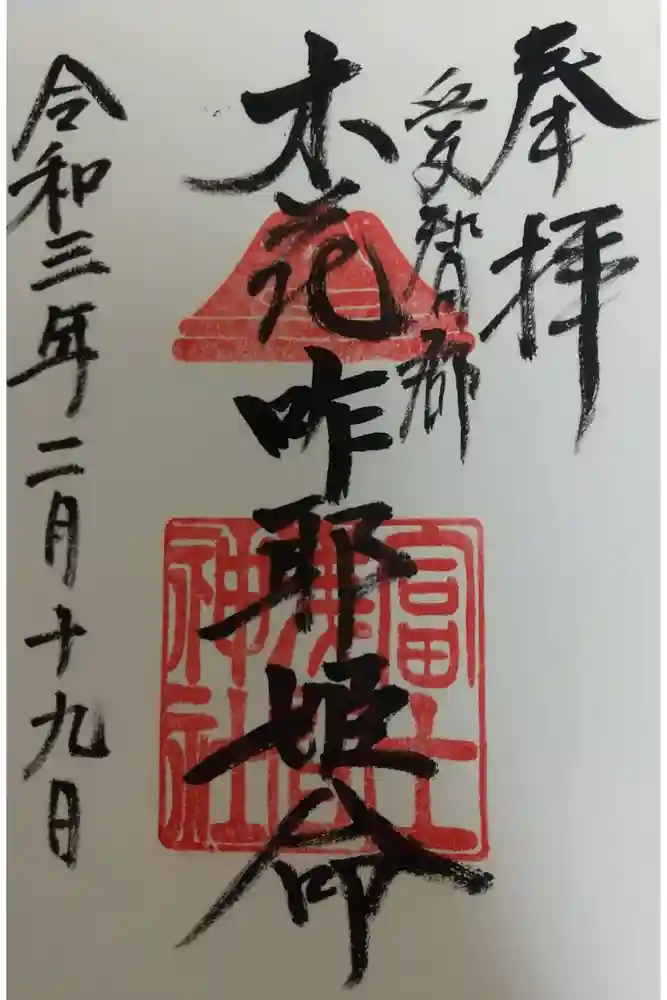 奉拝
愛智郡
木花咋耶姫命
富士
神社
令和三年二月十九日